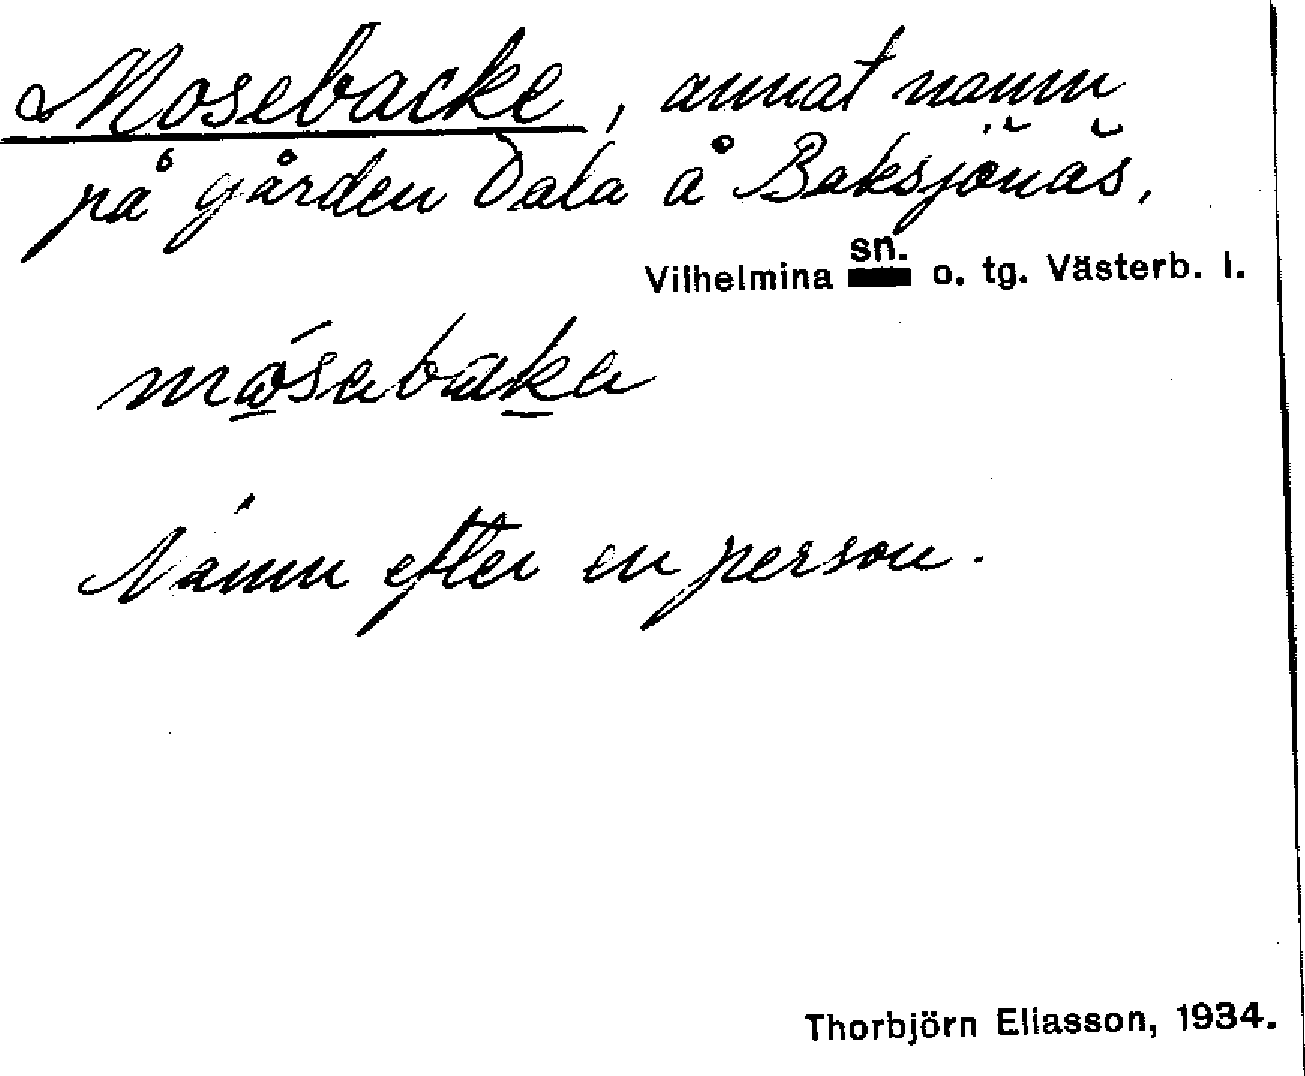 Mosebacke, annat namn
på gården Dala å Baksjönäs.
Vilhelmina sn. o. tg. Västerb. l.
mósabaka
Namn efter en person.
Thorbjörn Eliasson, 1934.